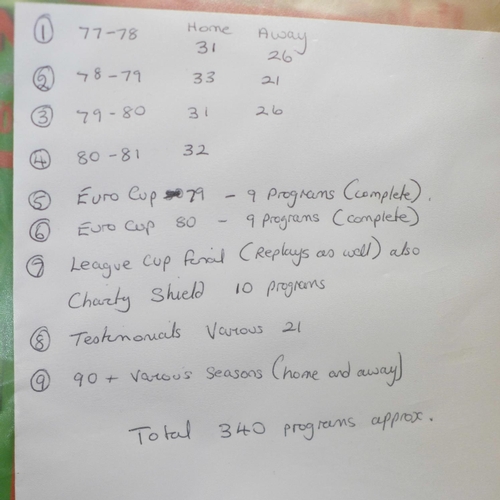 Home Away
① 77-78 31 26
② 78-79 33 21
③ 79-80 31 26
④ 80-81 32
⑤ Euro Cup 79 - 9 Programs (complete).
⑥ Euro Cup 80 - 9 programs (complete)
⑦ League Cup final (Replays as well) also
Charity Shield 10 programs
⑧ Testimonials Varous 21
⑨ 90 + Varous Seasons (home and away)
Total 340 programs approx.